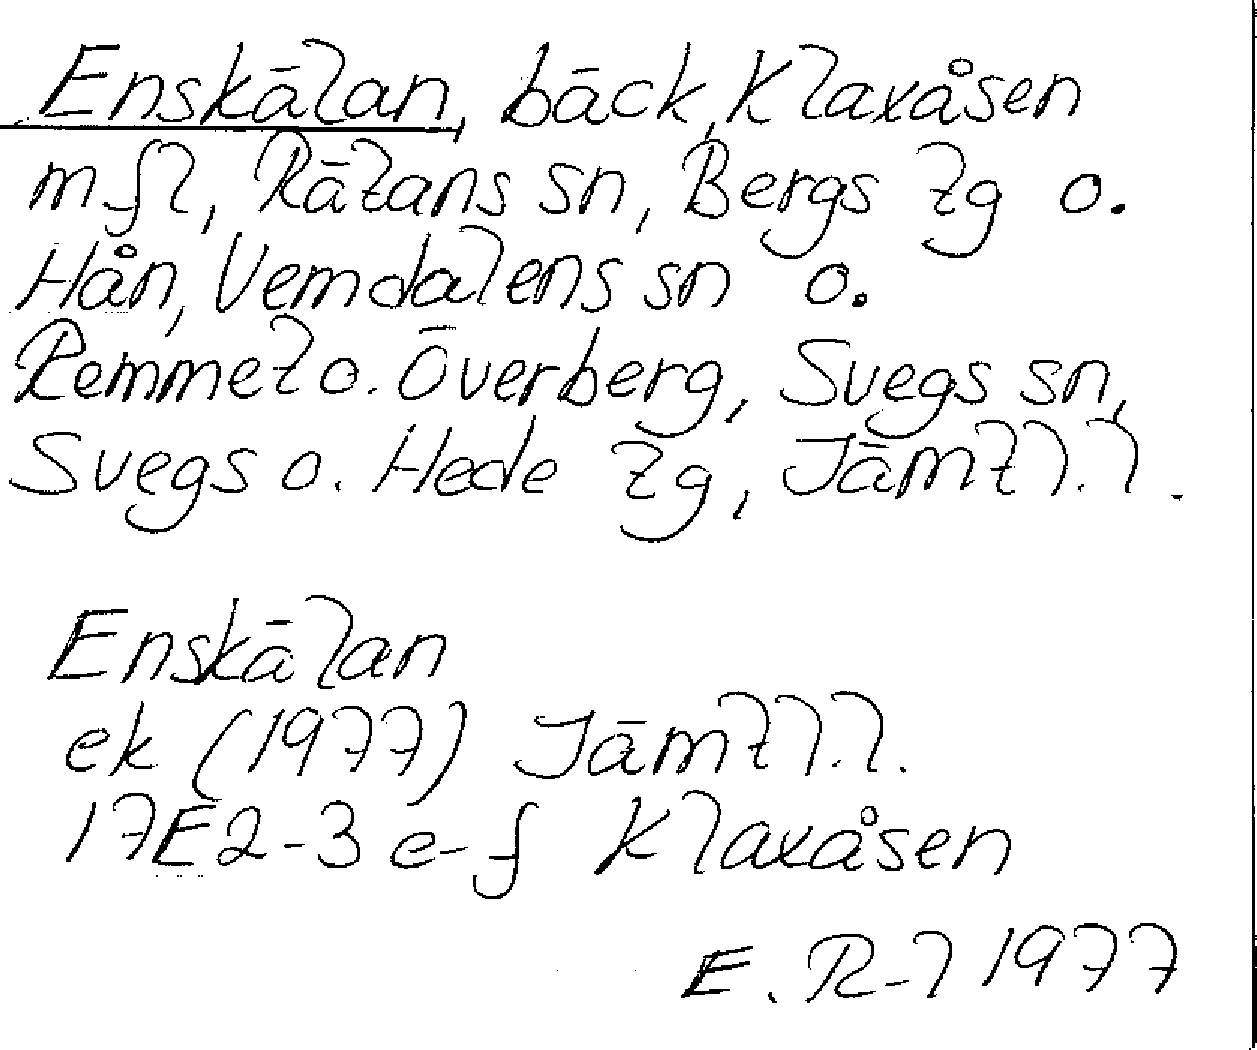 Enskälan, bäck, Klaxåsen
m fl, Rätans sn, Bergs tg o.
Hån, Vemdalens sn o.
Remmet o. Överberg, Svegs sn,
Svegs o. Hede tg, Jämtl.l.
Enskälan
ek (1977) Jämtl.l.
17E2-3 e-f Klaxåsen
E. R-l 1977